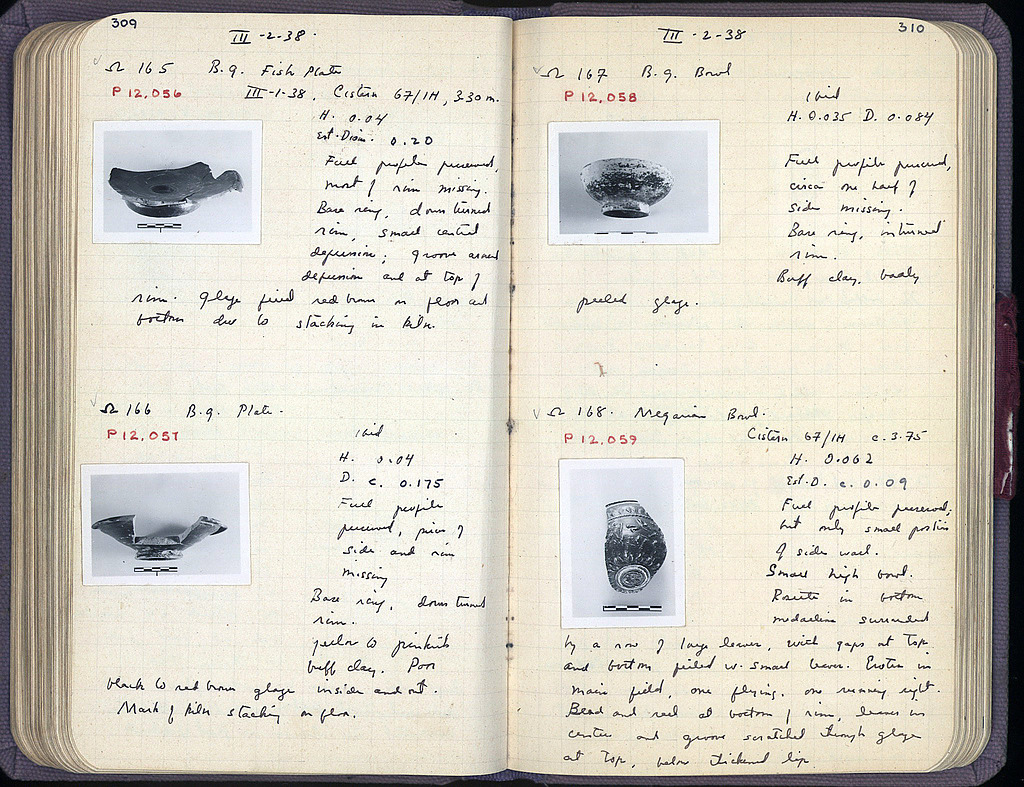 309
III -2-38.
Ω 165 B.g. Fish Plate
P 12,056 III-1-38, Cistern 67/1H, 3.30 m.
H. 0.04
Est. Diam. 0.20
Full profile preserved,
most of rim missing.
Base ring, down turned
rim, small central
depression; groove around
depression and at top of
rim. Glaze fired red brown on floor and
bottom due to stacking in kiln.
Ω 166 B.g. Plate.
P 12,057 ibid
H. 0.04
D. c. 0.175
Full profile
preserved, piece of
side and rim
missing
Base ring, down turned
rim.
yellow to pinkish
buff clay. Poor
black to red brown glaze inside and out.
Mark of kiln stacking on floor.
310
III -2-38
Ω 167 B.g. Bowl
P 12,058 ibid
H. 0.035 D. 0.084
Full profile preserved,
circa one half of
side missing.
Base ring, inturned
rim.
Buff clay, badly
peeled glaze.
Ω 168. Megarian Bowl.
P 12,059 Cistern 67/1H c. 3.75
H. 0.062
Est. D. c. 0.09
Full profile preserved;
but only small portion
of side wall.
Small high bowl.
Rosette in bottom
medallion surrounded
by a row of large leaves, with gaps at top
and bottom filled w. small leaves. Erotes in
main field, one flying, one running right.
Bead and reel at bottom of rim, leaves in
center and groove scratched through glaze
at top, below thickened lip